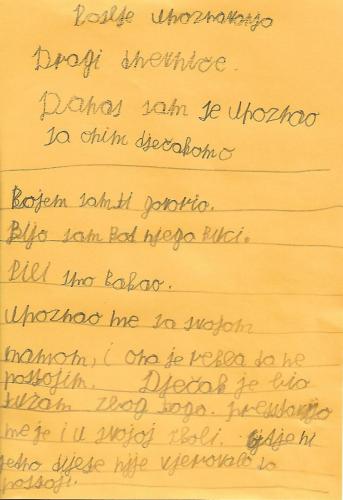 Poslje upoznavanja
Dragi dnevniče.
Danas sam se upoznao
sa onim dječakomo
Kojem sam ti govorio.
Bijo sam kod njega kući.
Pili smo kakao.
upoznao me sa svojom
mamom, i ona je rekla da ne
postojim. Dječak je bio
tužan zbog toga. prestavijo
me je i u svojoj školi. gdje ni
jedno dijese nije vjerovalo da
postoji.